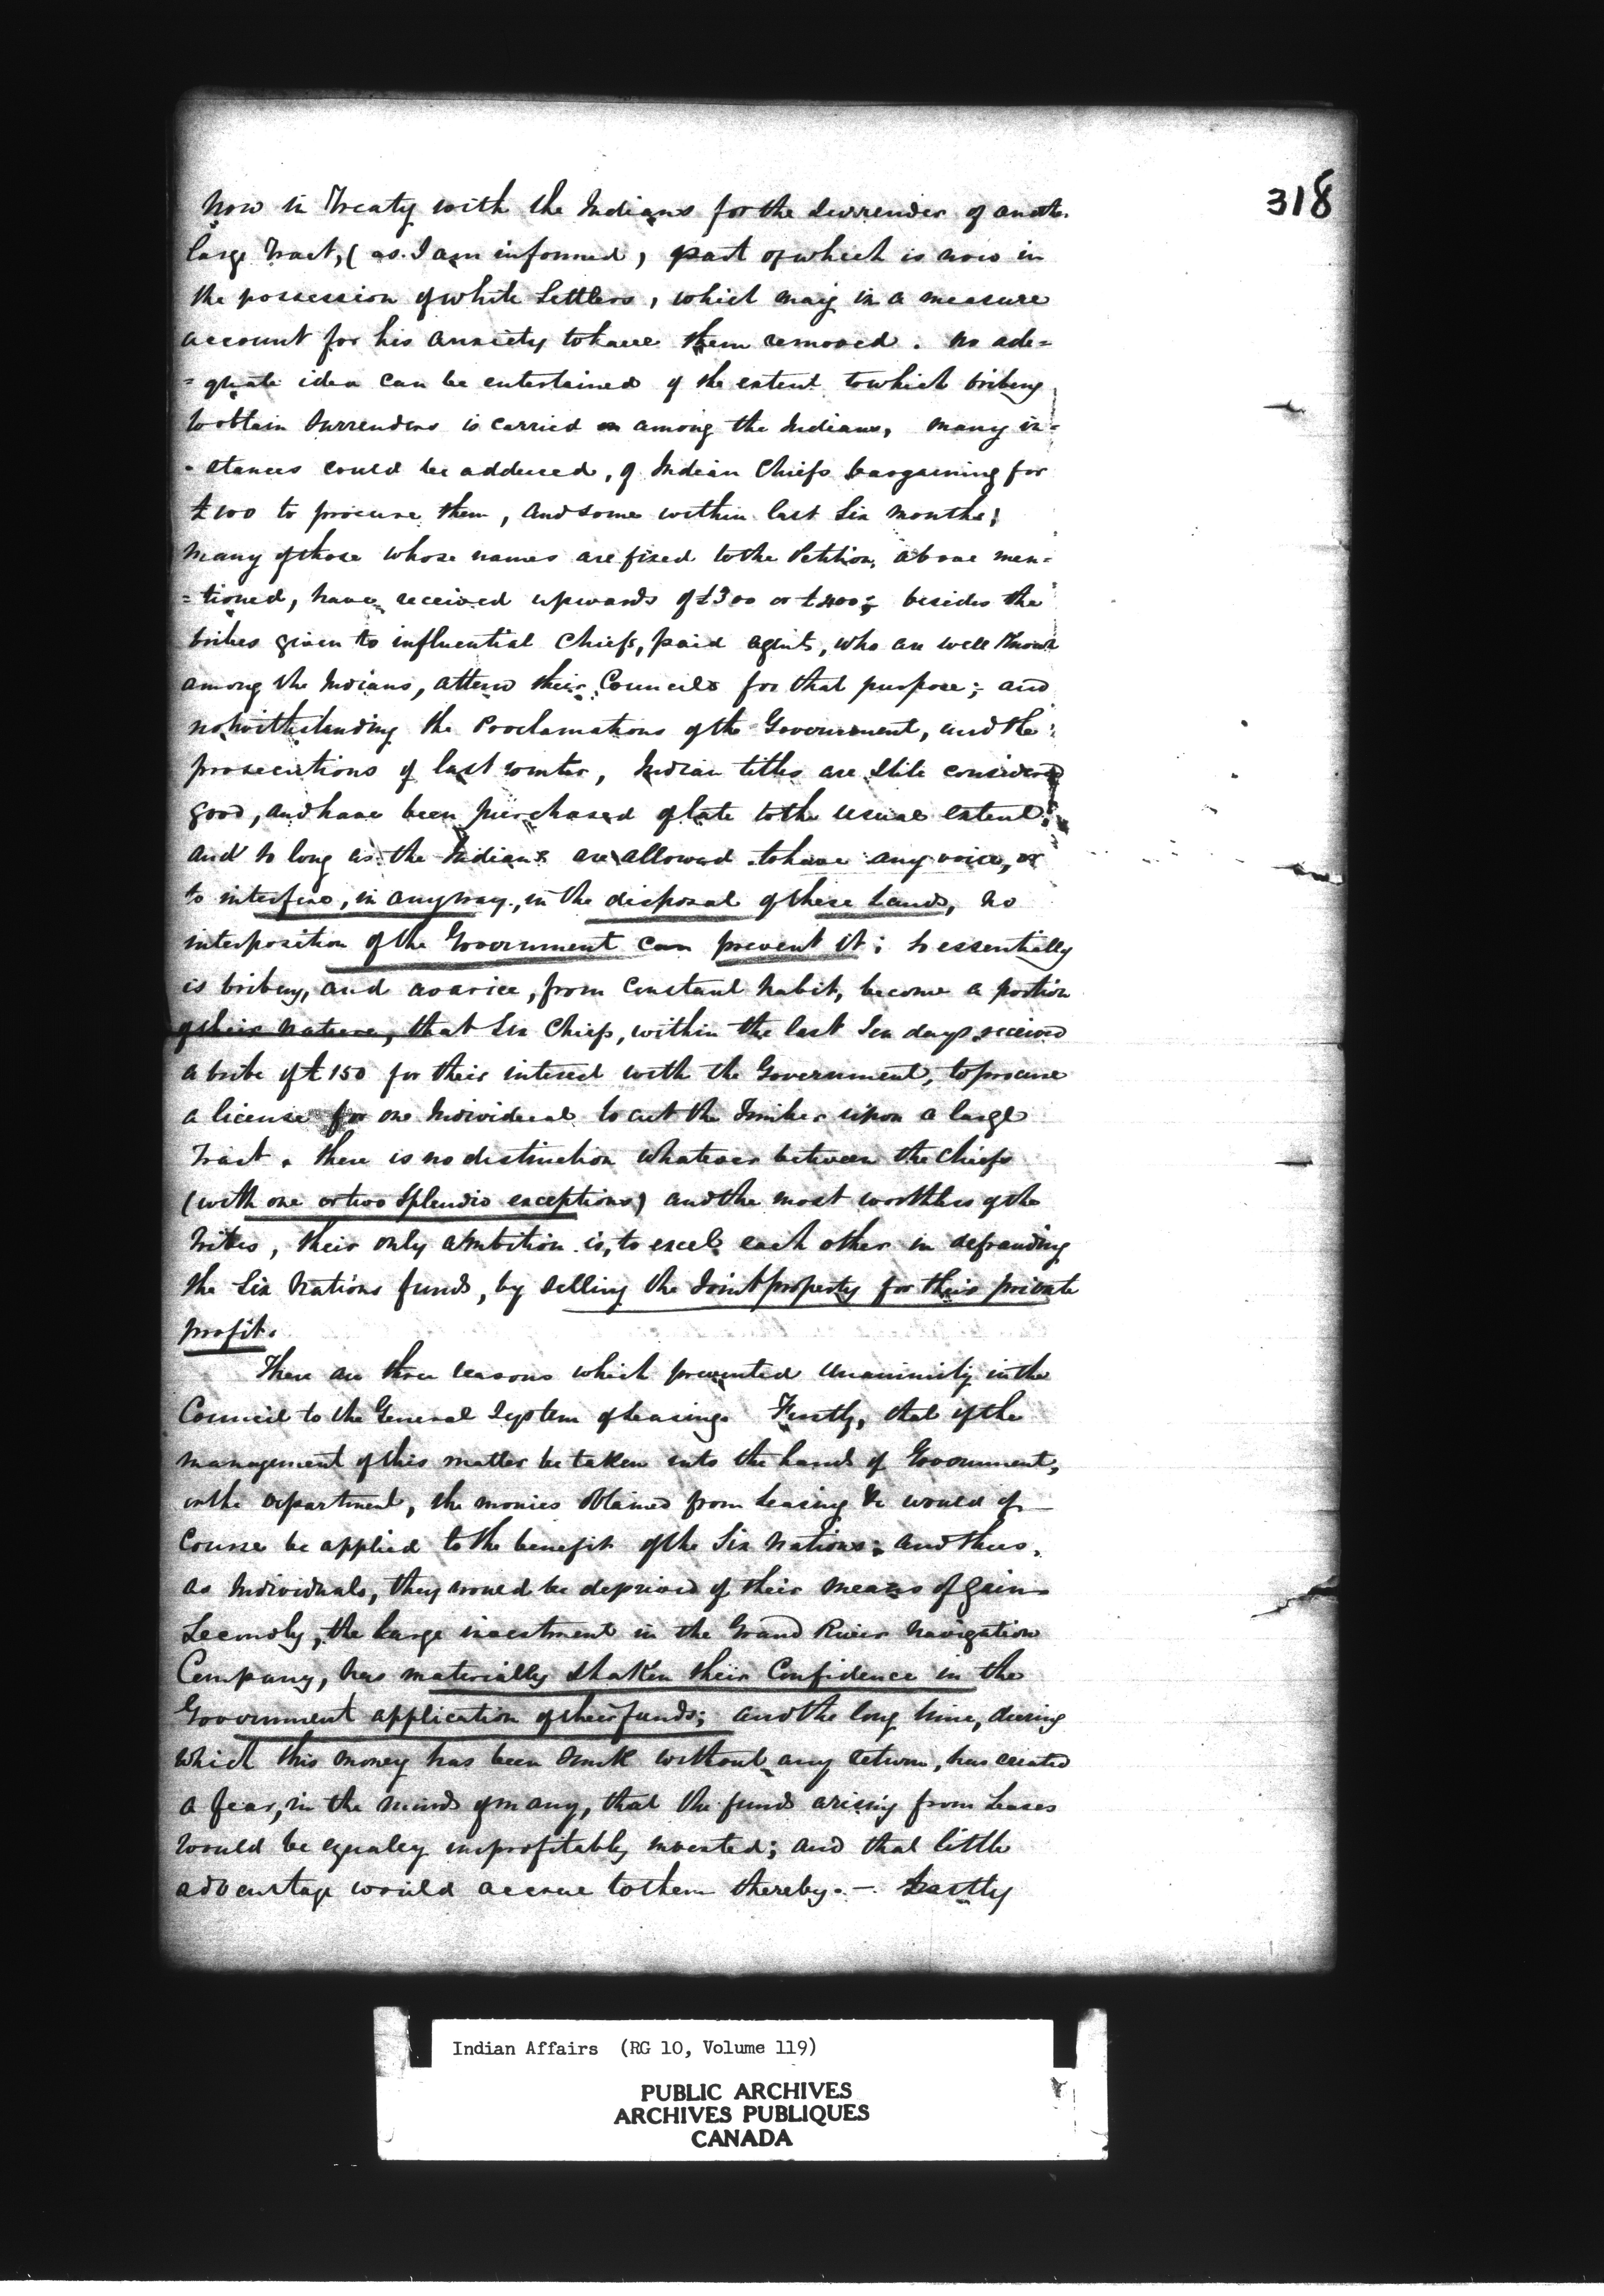 318
now in Treaty with the Indians for the Surrender of another
large Tract, (as I am informed, part of which is now in
the possession of white Settlers, which may in a measure
account for his anxiety to have them removed. No ade=
=quate idea can be entertained of the extent to which bribery
to obtain Surrenders is carried on among the Indians, many in=
-stances could be adduced, of Indian Chiefs bargaining for
£100 to procure them, and some within last Six months;
Many of those whose names are fixed to the Petition, above men=
=tioned, have received upwards of £300 or £400; besides the
bribes given to influential Chiefs, paid agents, who are well known
among the Indians, attend their Councils for that purpose; and
notwithstanding the Proclamations of the Government, and the
prosecutions of last winter, Indian titles are Still considered
good, and have been purchased of late to the usual extent;
and so long as the Indians are allowed to have any voice, or
to interfere, in any way, in the disposal of these Lands, no
interposition of the Government can prevent it; So essentially
is bribery, and avarice, from Constant habit, become a portion
of their nature, that Six Chiefs, within the last Ten days received
a bribe of £150 for their interest with the Government, to procure
a license for one Individual to cut the Timber upon a large
Tract. there is no distinction whatever between the Chiefs
(with one or two Splendid exceptions) and the most worthless of the
tribes, their only ambition is, to excel each other in defrauding
the Six Nations funds, by selling the Joint property for their private
profit.
There are three reasons which prevented unanimity in the
Council to the General System of leasing. Firstly, that if the
management of this matter be taken into the hands of Government,
or the department, the monies obtained from Leasing &c would of
Course be applied to the benefit of the Six Nations; and thus,
as Individuals, they would be deprived of their means of gain
Secondly, the large investment in the Grand River Navigation
Company, has materially shaken their Confidence in the
Government application of their funds; and the long time, during
which this money has been sunk without any return, has created
a fear, in the minds of many, that the funds arising from Leases
would be equaley unprofitably invested; and that little
advantage would accrue to them thereby. — Lastly
Indian Affairs (RG 10, Volume 119)
PUBLIC ARCHIVES
ARCHIVES PUBLIQUES
CANADA